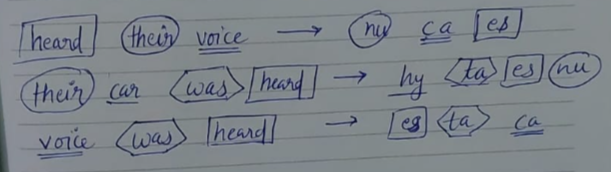 heard their voice → nu ca es
their car was heard → hy ta es nu
voice was heard → es ta ca